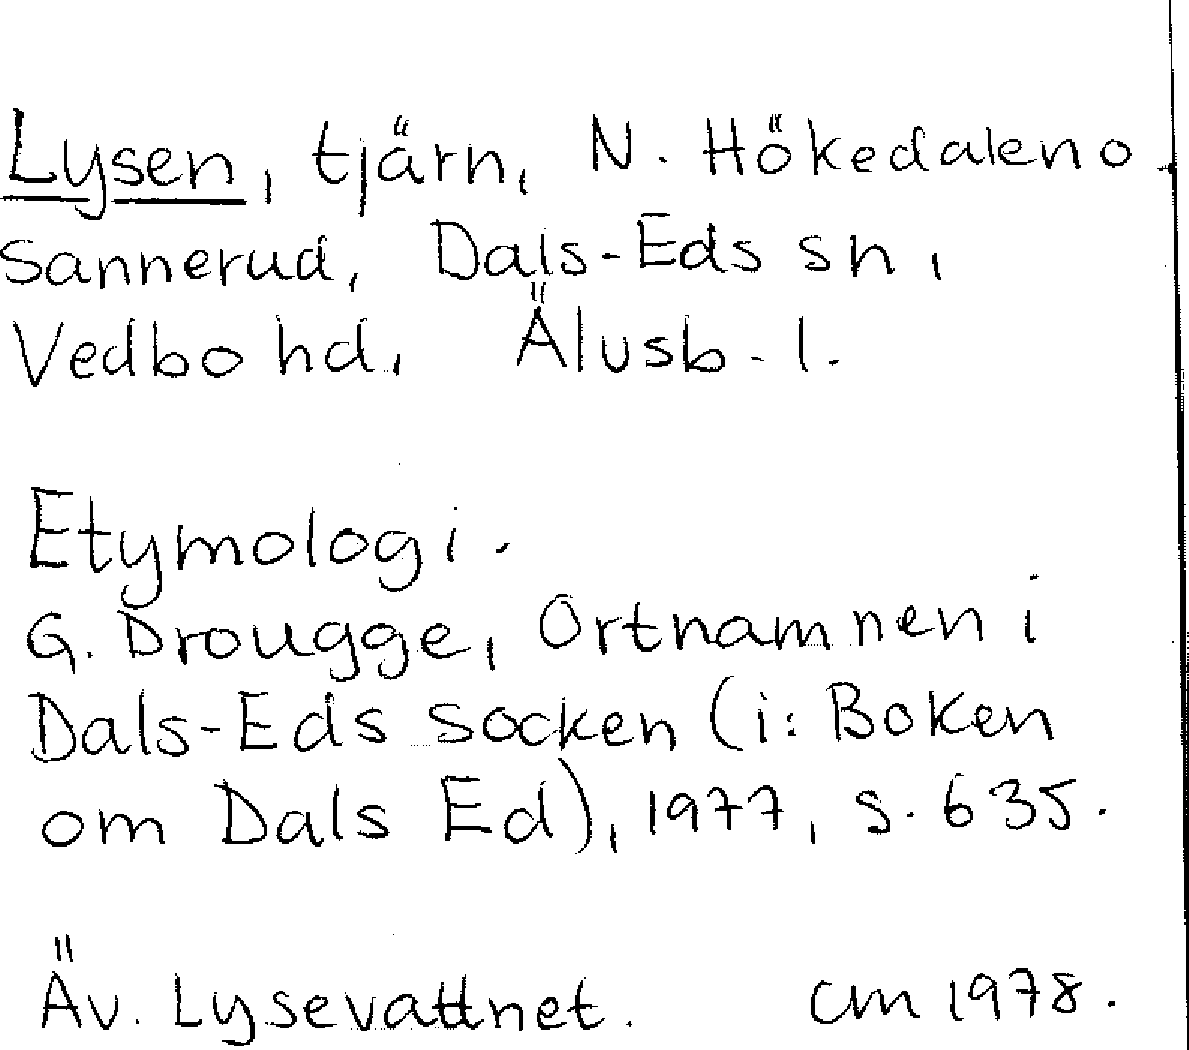 Lysen, tjärn, N. Hökedalen o.
Sannerud, Dals-Eds sn,
Vedbo hd, Älvsb. l.
Etymologi.
G. Drougge, Ortnamnen i
Dals-Eds socken (i: Boken
om Dals Ed), 1977, s. 635.
Äv. Lysevattnet. CM 1978.